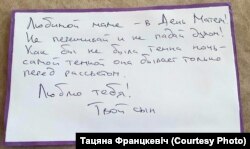 Любимой маме - в День Матери!
Не переживай и не падай духом!
Как бы не была темна ночь-
самой темной она бывает только
перед рассветом.
Люблю тебя!
Твой сын
Тацяна Францкевіч (Courtesy Photo)